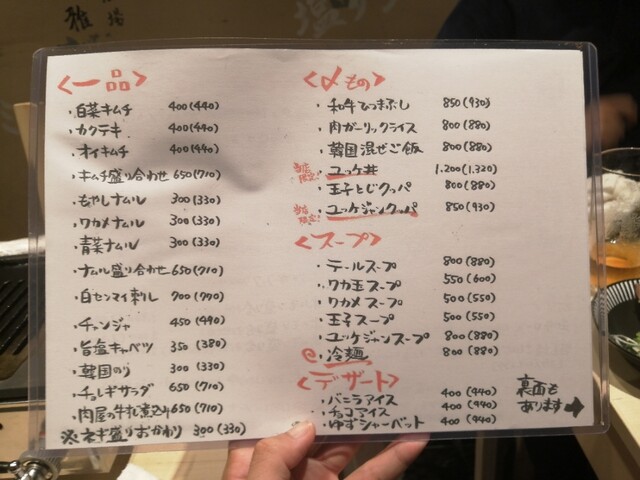 <一品>
・白菜キムチ 400(440)
・カクテキ 400(440)
・オイキムチ 400(440)
・キムチ盛り合わせ 650(710)
・もやしナムル 300(330)
・ワカメナムル 300(330)
・青菜ナムル 300(330)
・ナムル盛り合わせ 650(710)
・白センマイ刺し 700(770)
・チャンジャ 450(490)
・旨塩キャベツ 350(380)
・韓国のり 300(330)
・チョレギサラダ 650(710)
・肉屋の牛すじ煮込み 650(710)
※ネギ盛りおかわり 300(330)
<〆もの>
・和牛ひつまぶし 850(930)
・肉ガーリックライス 800(880)
・韓国混ぜご飯 800(880)
・ユッケ丼 1.200(1.320)
・玉子とじクッパ 800(880)
・ユッケジャンクッパ 850(930)
<スープ>
・テールスープ 800(880)
・ワカ玉スープ 550(600)
・ワカメスープ 500(550)
・玉子スープ 500(550)
・ユッケジャンスープ 800(880)
・冷麺 800(880)
<デザート>
・バニラアイス 400(440)
・チョコアイス 400(440)
・ゆずシャーベット 400(440)
裏面も
あります→